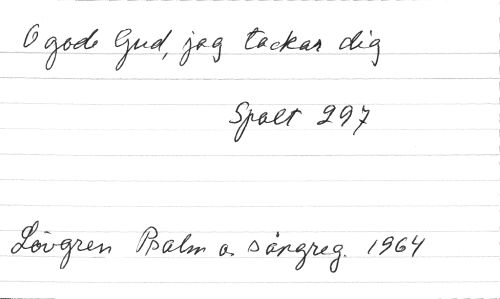 O gode Gud, jag tackar dig
Spalt 297
Lövgren Psalm o. sångreg. 1964